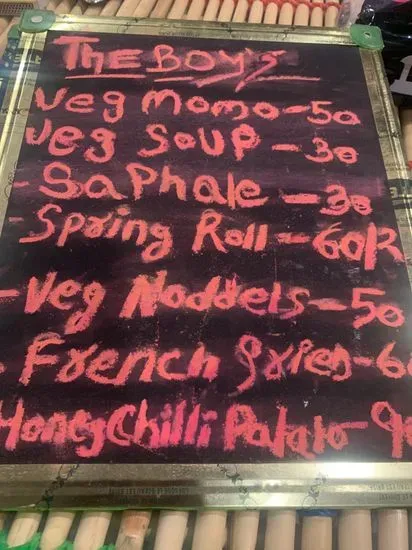 THE BOY'S
Veg momo-50
Veg SOUP-30
-Saphale-30
-Spring Roll-60R
-Veg Noddels-50
French grien-60
Honey Chilli Patato-90